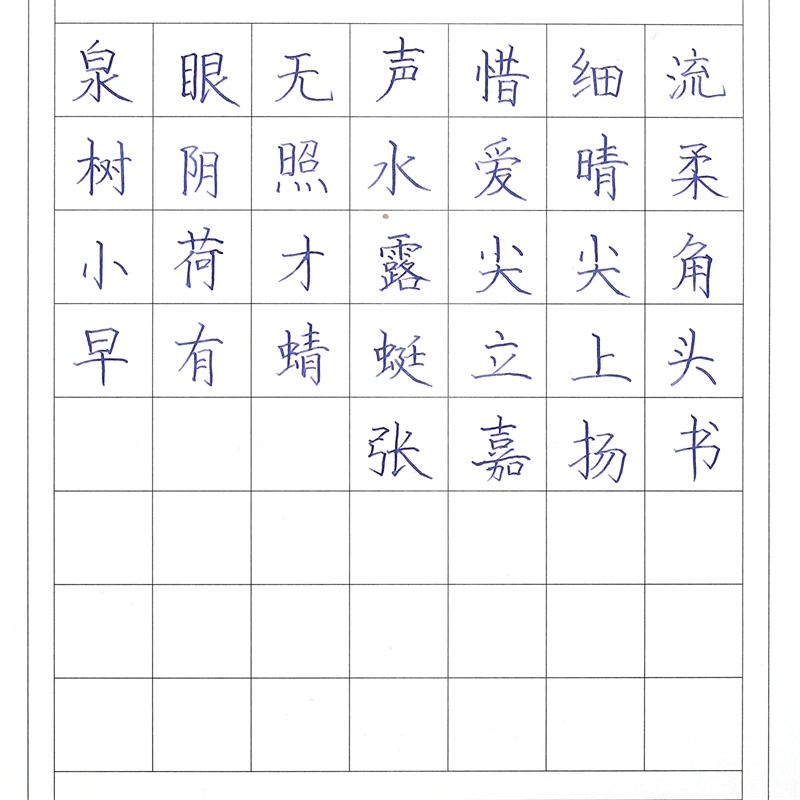 泉眼无声惜细流
树阴照水爱晴柔
小荷才露尖尖角
早有蜻蜓立上头
张嘉扬书